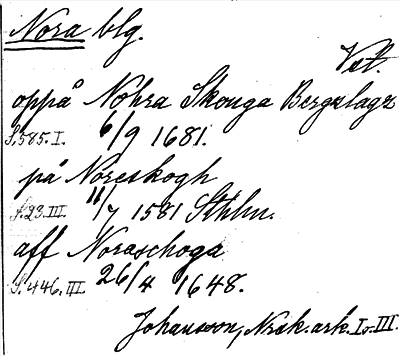 Nora blg.
Vstl.
oppå Nohra Skouga Bergzlagz
S.585.I. 6/9 1681.
på Noreskogh
S.23.III. 11/7 1581 Sthlm.
aff Noraschoga
S.446.III. 26/4 1648.
Johansson, Nrsk. ark. I o. III.